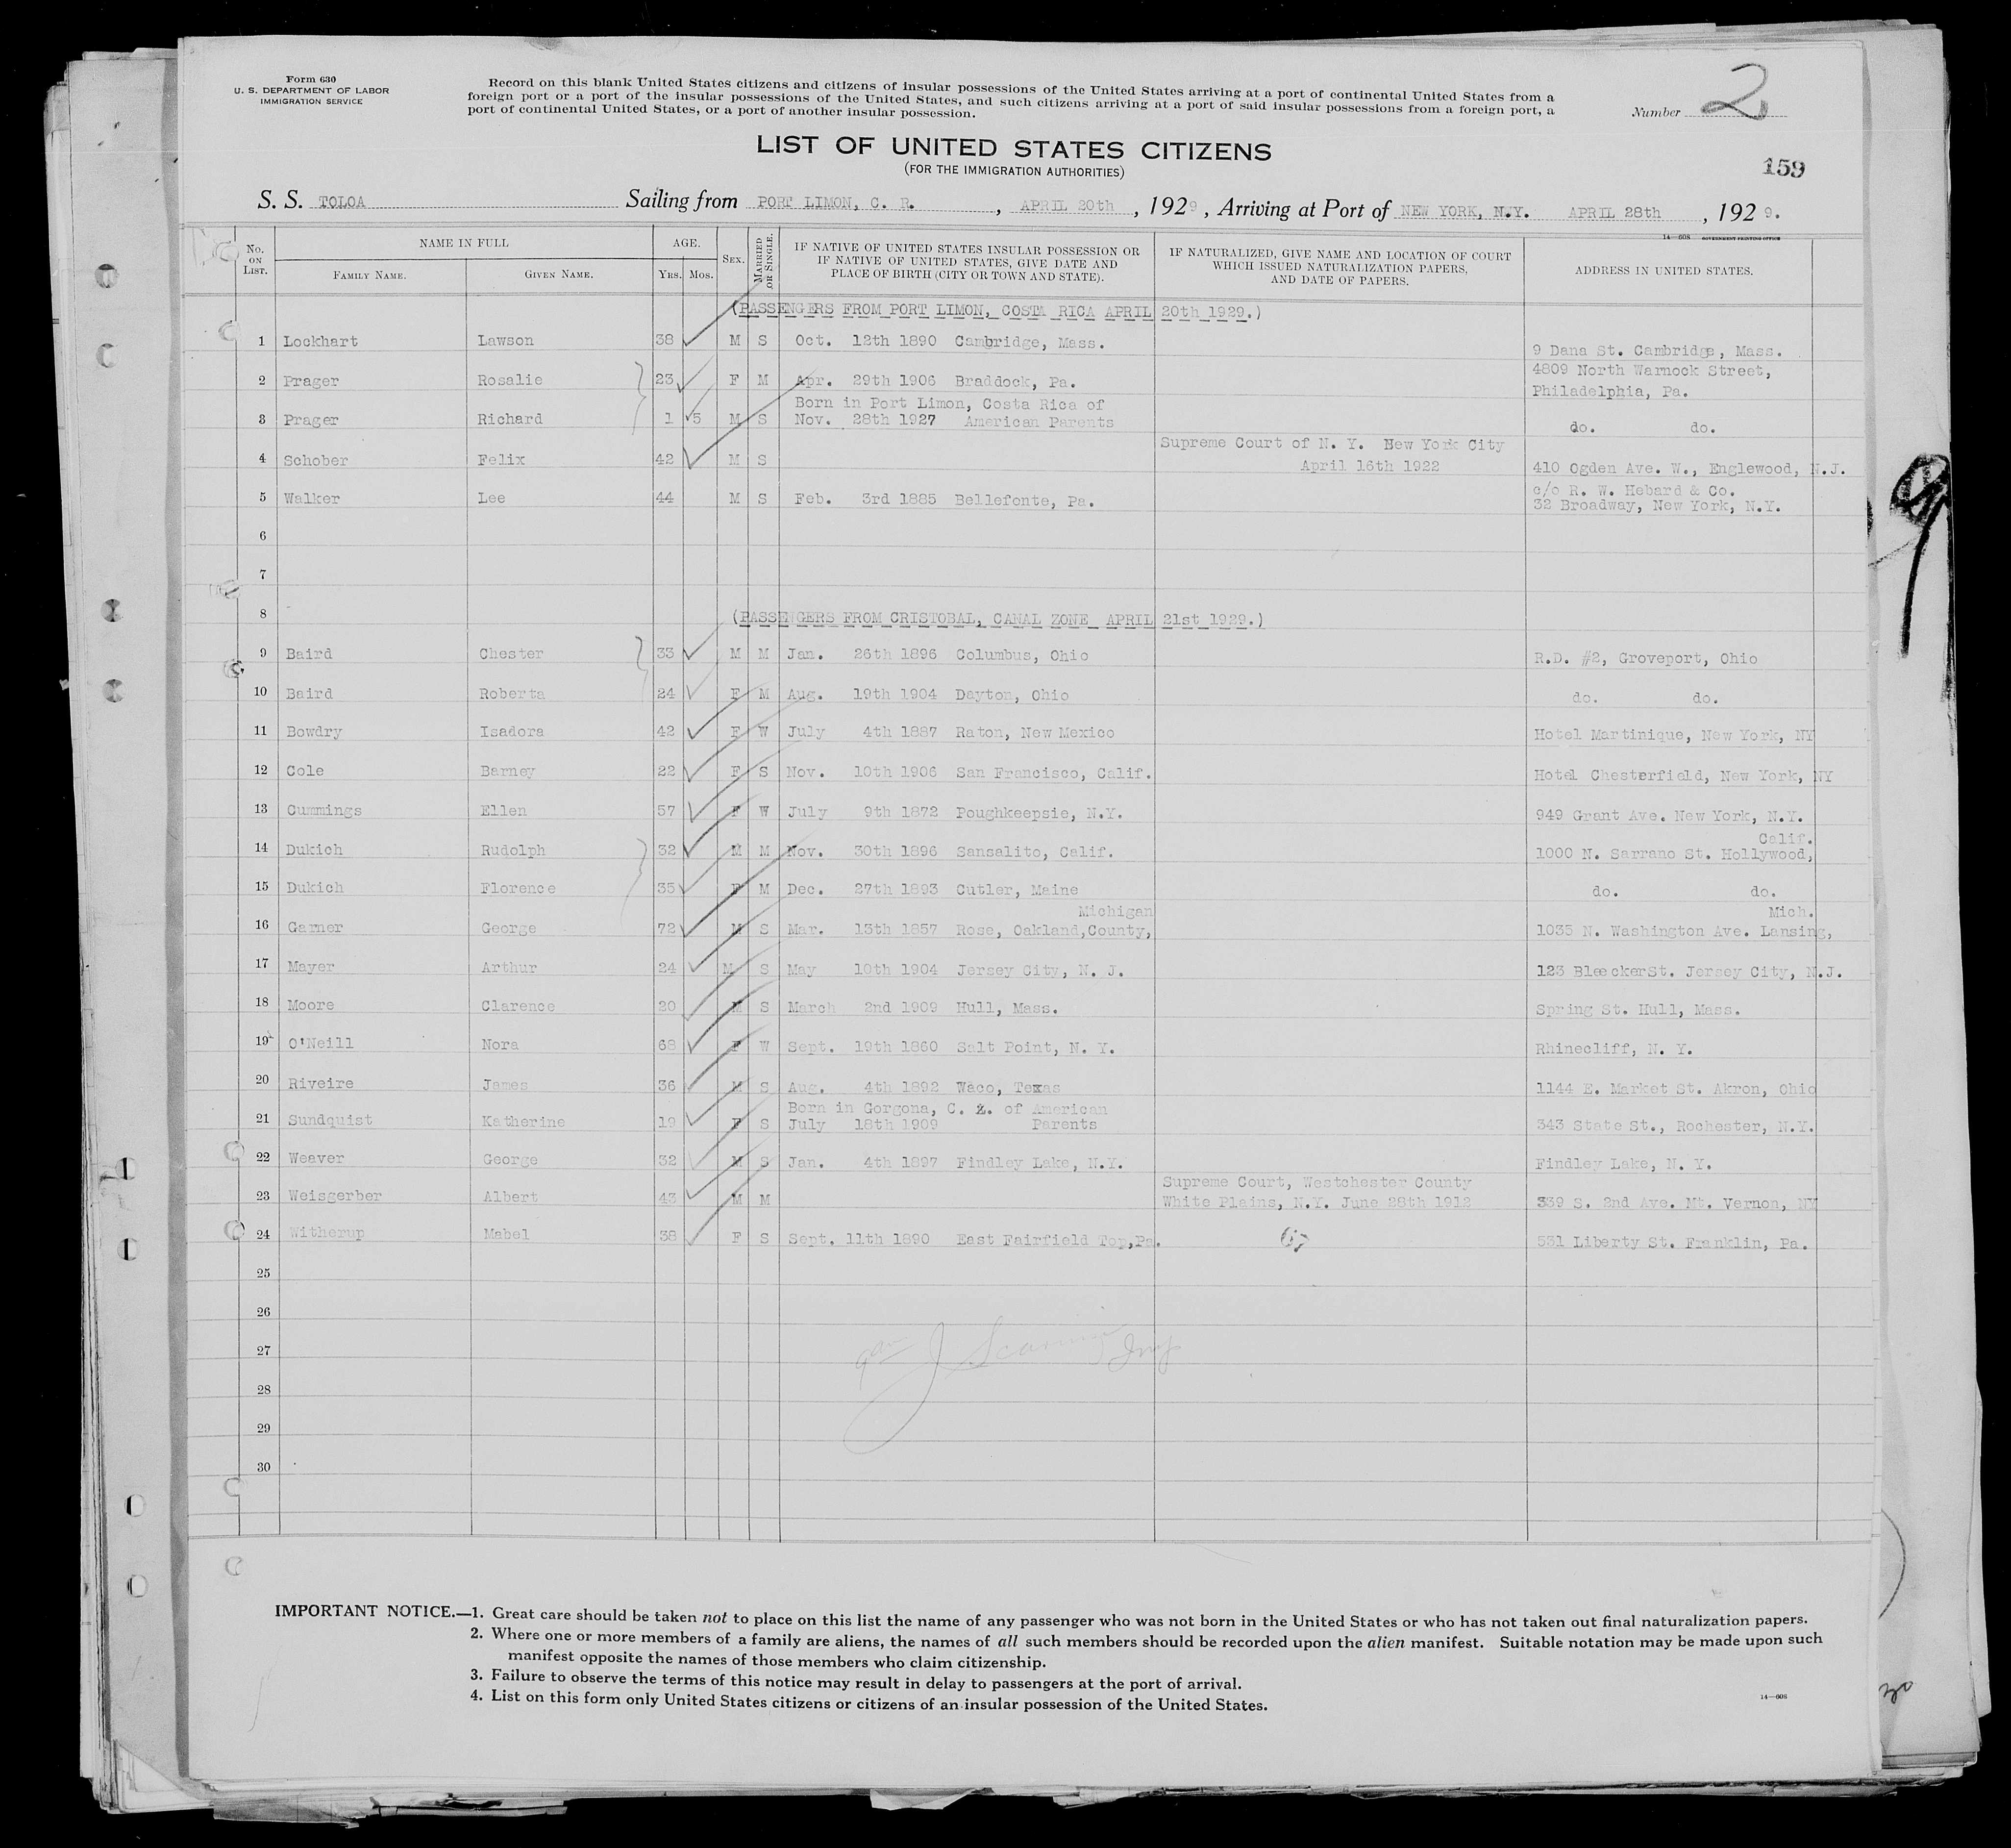 Form 630
U. S. DEPARTMENT OF LABOR
IMMIGRATION SERVICE
Record on this blank United States citizens and citizens of insular possessions of the United States arriving at a port of continental United States from a
foreign port or a port of the insular possessions of the United States, and such citizens arriving at a port of said insular possessions from a foreign port, a
port of continental United States, or a port of another insular possession.
Number 2
LIST OF UNITED STATES CITIZENS
(FOR THE IMMIGRATION AUTHORITIES)
159
S. S. TOLOA Sailing from PORT LIMON, C. R. , APRIL 20th , 1929 , Arriving at Port of NEW YORK, N.Y. APRIL 28th , 1929.
14—608 GOVERNMENT PRINTING OFFICE
No. ON LIST. NAME IN FULL FAMILY NAME. GIVEN NAME. AGE. YRS. MOS. SEX. MARRIED OR SINGLE. IF NATIVE OF UNITED STATES INSULAR POSSESSION OR IF NATIVE OF UNITED STATES, GIVE DATE AND PLACE OF BIRTH (CITY OR TOWN AND STATE). IF NATURALIZED, GIVE NAME AND LOCATION OF COURT WHICH ISSUED NATURALIZATION PAPERS, AND DATE OF PAPERS. ADDRESS IN UNITED STATES.
(PASSENGERS FROM PORT LIMON, COSTA RICA APRIL 20th 1929.)
1 Lockhart Lawson 38 M S Oct. 12th 1890 Cambridge, Mass. 9 Dana St. Cambridge, Mass.
2 Prager Rosalie 23 F M Apr. 29th 1906 Braddock, Pa. 4809 North Warnock Street,
Philadelphia, Pa.
Born in Port Limon, Costa Rica of
3 Prager Richard 1 5 M S Nov. 28th 1927 American Parents do. do.
Supreme Court of N. Y. New York City
4 Schober Felix 42 M S April 16th 1922 410 Ogden Ave. W., Englewood, N.J.
c/o R. W. Hebard & Co.
5 Walker Lee 44 M S Feb. 3rd 1885 Bellefonte, Pa. 32 Broadway, New York, N.Y.
6
7
8 (PASSENGERS FROM CRISTOBAL, CANAL ZONE APRIL 21st 1929.)
9 Baird Chester 33 M M Jan. 26th 1896 Columbus, Ohio R.D. #2, Groveport, Ohio
10 Baird Roberta 24 F M Aug. 19th 1904 Dayton, Ohio do. do.
11 Bowdry Isadora 42 F W July 4th 1887 Raton, New Mexico Hotel Martinique, New York, NY
12 Cole Barney 22 F S Nov. 10th 1906 San Francisco, Calif. Hotel Chesterfield, New York, NY
13 Cummings Ellen 57 F W July 9th 1872 Poughkeepsie, N.Y. 949 Grant Ave. New York, N.Y.
Calif.
14 Dukich Rudolph 32 M M Nov. 30th 1896 Sansalito, Calif. 1000 N. Sarrano St. Hollywood,
15 Dukich Florence 35 F M Dec. 27th 1893 Cutler, Maine do. do.
Michigan Mich.
16 Garner George 72 M S Mar. 13th 1857 Rose, Oakland,County, 1035 N. Washington Ave. Lansing,
17 Mayer Arthur 24 M S May 10th 1904 Jersey City, N. J. 123 BleeckerSt. Jersey City, N.J.
18 Moore Clarence 20 M S March 2nd 1909 Hull, Mass. Spring St. Hull, Mass.
19 O'Neill Nora 68 F W Sept. 19th 1860 Salt Point, N. Y. Rhinecliff, N. Y.
20 Riveire James 36 M S Aug. 4th 1892 Waco, Texas 1144 E. Market St. Akron, Ohio
Born in Gorgona, C. Z. of American
21 Sundquist Katherine 19 F S July 18th 1909 Parents 343 State St., Rochester, N.Y.
22 Weaver George 32 M S Jan. 4th 1897 Findley Lake, N.Y. Findley Lake, N. Y.
Supreme Court, Westchester County
23 Weisgerber Albert 43 M M White Plains, N.Y. June 28th 1912 339 S. 2nd Ave. Mt. Vernon, NY
24 Witherup Mabel 38 F S Sept. 11th 1890 East Fairfield Top,Pa. 531 Liberty St. Franklin, Pa.
67
25
26
27
28
29
30
IMPORTANT NOTICE.—1. Great care should be taken not to place on this list the name of any passenger who was not born in the United States or who has not taken out final naturalization papers.
2. Where one or more members of a family are aliens, the names of all such members should be recorded upon the alien manifest. Suitable notation may be made upon such
manifest opposite the names of those members who claim citizenship.
3. Failure to observe the terms of this notice may result in delay to passengers at the port of arrival.
4. List on this form only United States citizens or citizens of an insular possession of the United States.
14—608